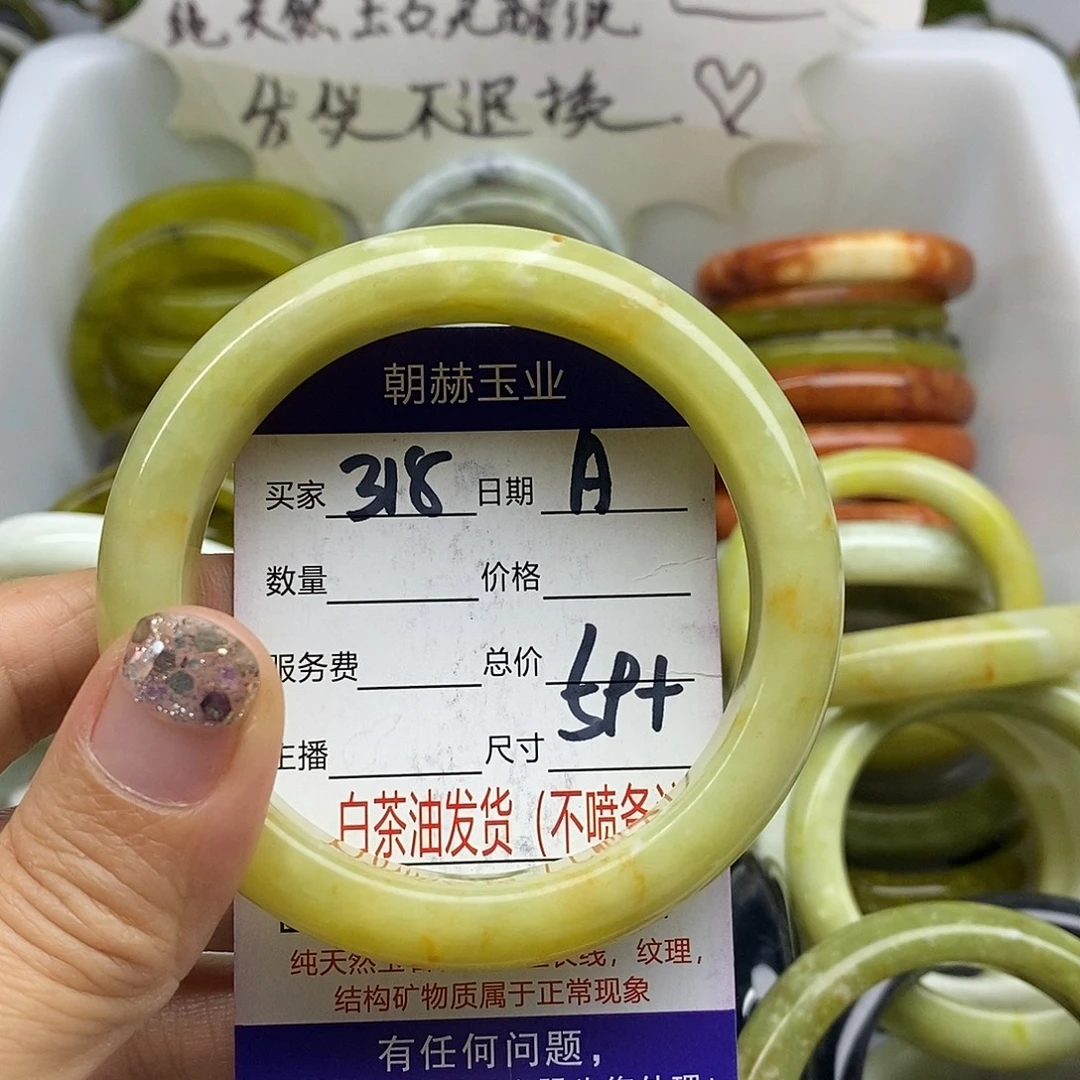 纯天然玉石无酸洗
售出不退换
朝赫玉业
买家 318 日期 A
数量 价格
服务费 总价
主播 尺寸
白茶油发货（不喷
纯天然玉
纹理，
结构矿物质属于正常现象
有任何问题，